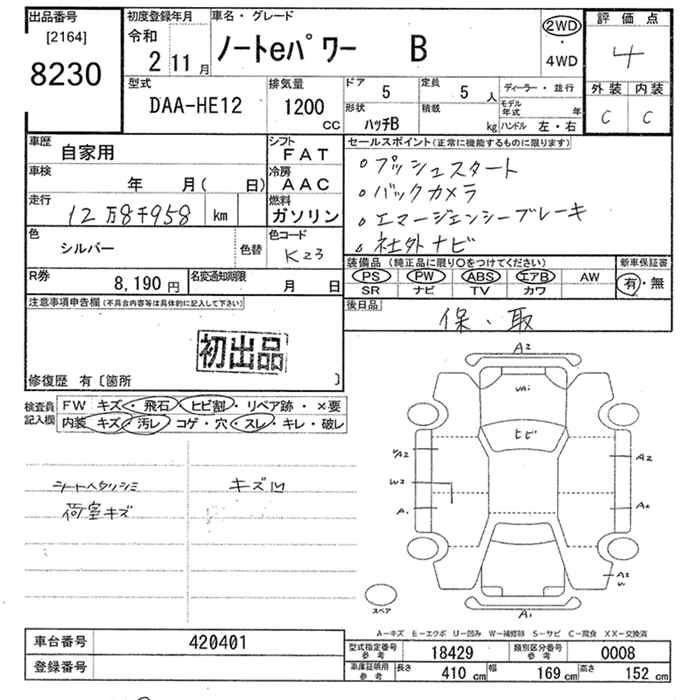 出品番号
[2164]
8230
初度登録年月
令和
2 11月
車名・グレード
ノートeパワー B
2WD
・
4WD
評価点
4
外装 内装
C C
型式
DAA-HE12
排気量
1200
CC
ドア 5
定員 5 人
形状 ハッチB
積載 kg
ディーラー・並行
モデル年式 年
ハンドル 左・右
車歴 自家用
車検 年 月( 日)
走行 12万8千958 km
シフト FAT
冷房 AAC
燃料 ガソリン
色 シルバー
色替
色コード K23
R券 8,190円
名変通知期限 月 日
セールスポイント(正常に機能するものに限ります)
○プッシュスタート
○バックカメラ
○エマージェンシーブレーキ
○社外ナビ
装備品(純正品に限り○をつけてください)
PS PW ABS エアB AW
SR ナビ TV カワ
新車保証書
有・無
後日品
保・取
注意事項申告欄(不具合内容等は具体的に記入して下さい)
初出品
修復歴 有〔箇所 〕
検査員記入欄
FW キズ・飛石・ヒビ割・リペア跡・×要
内装 キズ・汚レ・コゲ・穴・スレ・キレ・破レ
シートヘタリシミ
荷室キズ
キズ凹
A2
UA1
ヒビ
A2
W2
A1
A2
A2
A2
W
A1
スペア
A−キズ E−エクボ U−凹み W−補修跡 S−サビ C−腐食 XX−交換済
車台番号 420401
登録番号
型式指定番号 参考 18429
類別区分番号 参考 0008
車庫証明用 参考 長さ 410 cm 幅 169 cm 高さ 152 cm